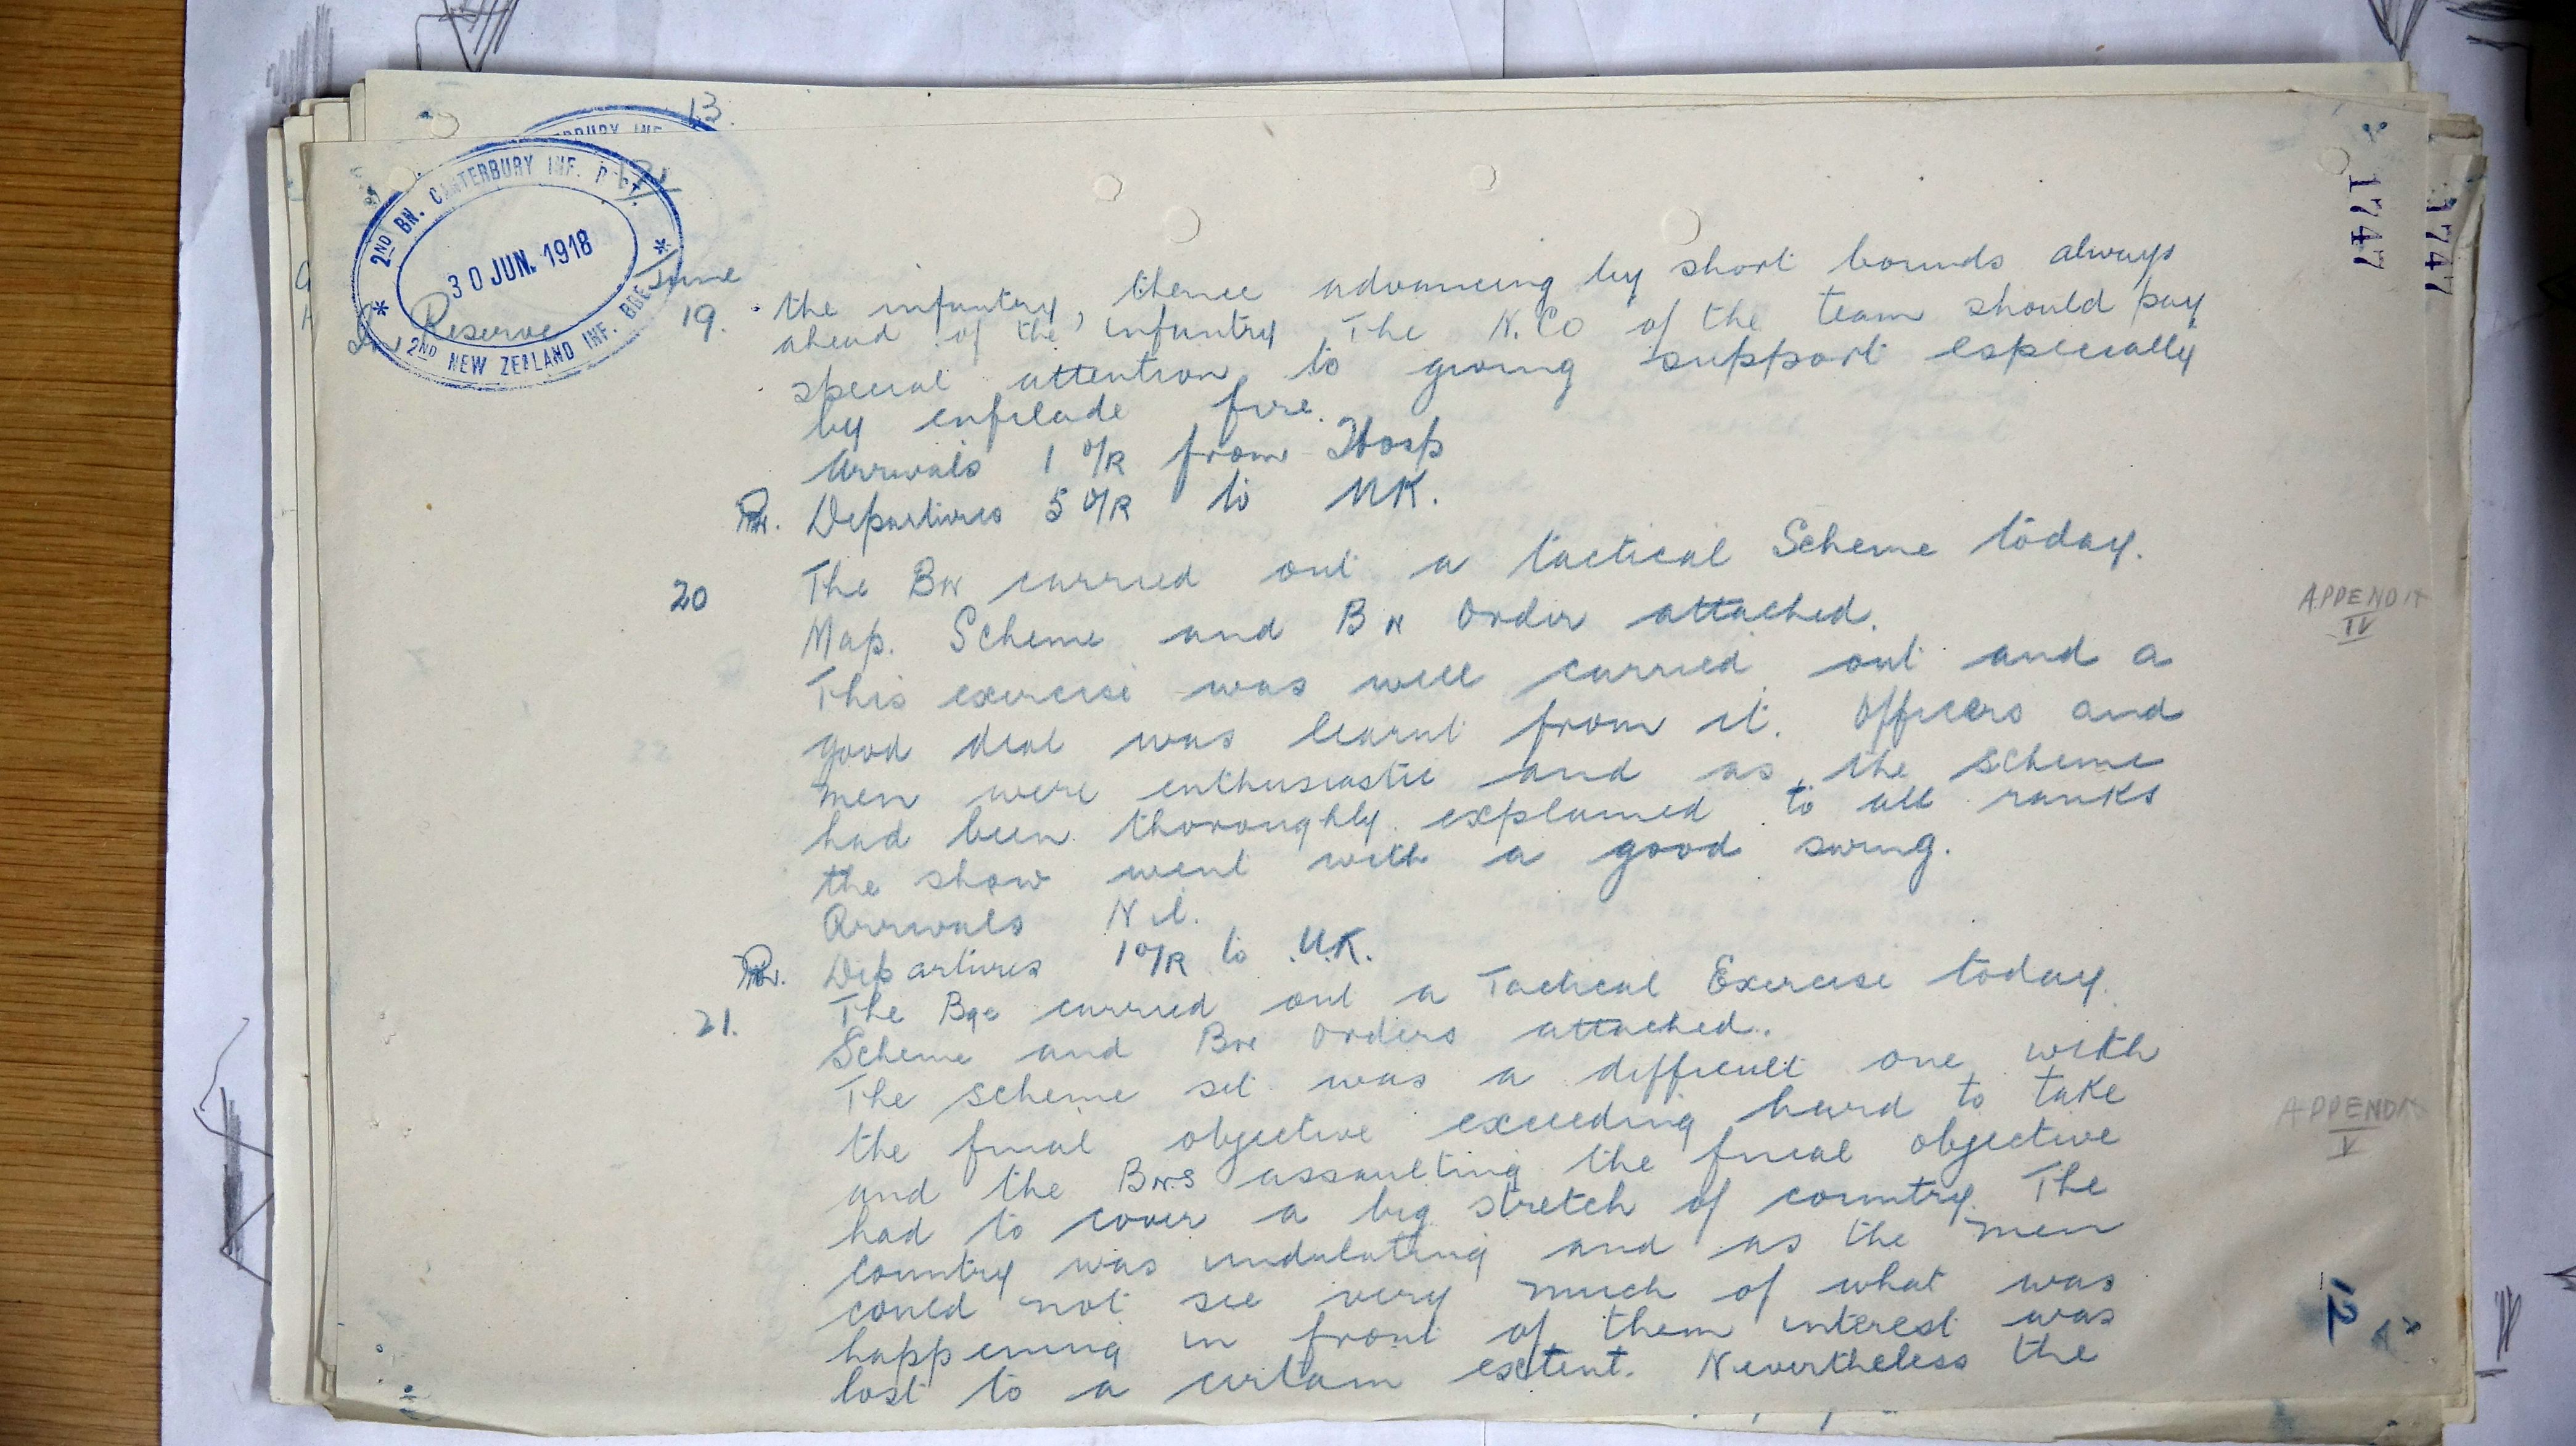 13.
2ND BN. CANTERBURY INF. REGT.
30 JUN. 1918
2ND NEW ZEALAND INF. BDE
1747
1747
In Reserve
June
19. the infantry, thence advancing by short bounds always
ahead of the infantry The N.CO of the team should pay
special attention to giving support especially
by enfilade fire.
Arrivals 1 O/R from Hosp
Departures 5 O/R to UK.
20 The BN carried out a tactical Scheme today.
Map. Scheme and BN Order attached.
APPENDIX
IV
This exercise was well carried out and a
good deal was learnt from it. Officers and
men were enthusiastic and as the scheme
had been thoroughly explained to all ranks
the show went with a good swing.
Arrivals Nil.
Departures 1 O/R to U.K.
21. The Bge carried out a Tactical Exercise today.
Scheme and BN Orders attached.
APPENDIX
V
The scheme set was a difficult one with
the final objective exceeding hard to take
and the BNS assaulting the final objective
had to cover a big stretch of country. The
country was undulating and as the men
could not see very much of what was
happening in front of them interest was
lost to a certain extent. Nevertheless the